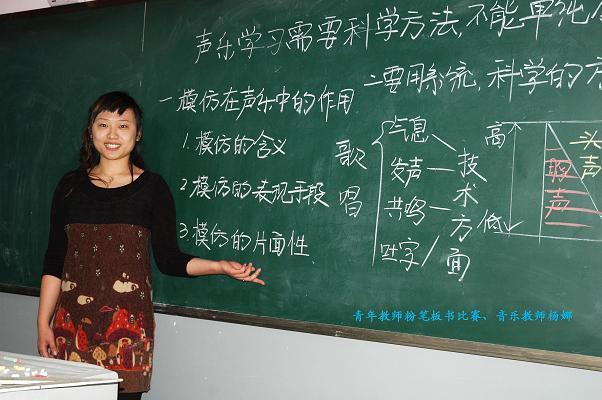 声乐学习需要科学方法，不能单纯
一模仿在声乐中的作用
1.模仿的含义
2.模仿的表现手段
3.模仿的片面性
二要用系统，科学的方
歌唱
气息
发声
共鸣
吐字
技术方面
高
低
头声
胸声
青年教师粉笔板书比赛、音乐教师杨娜